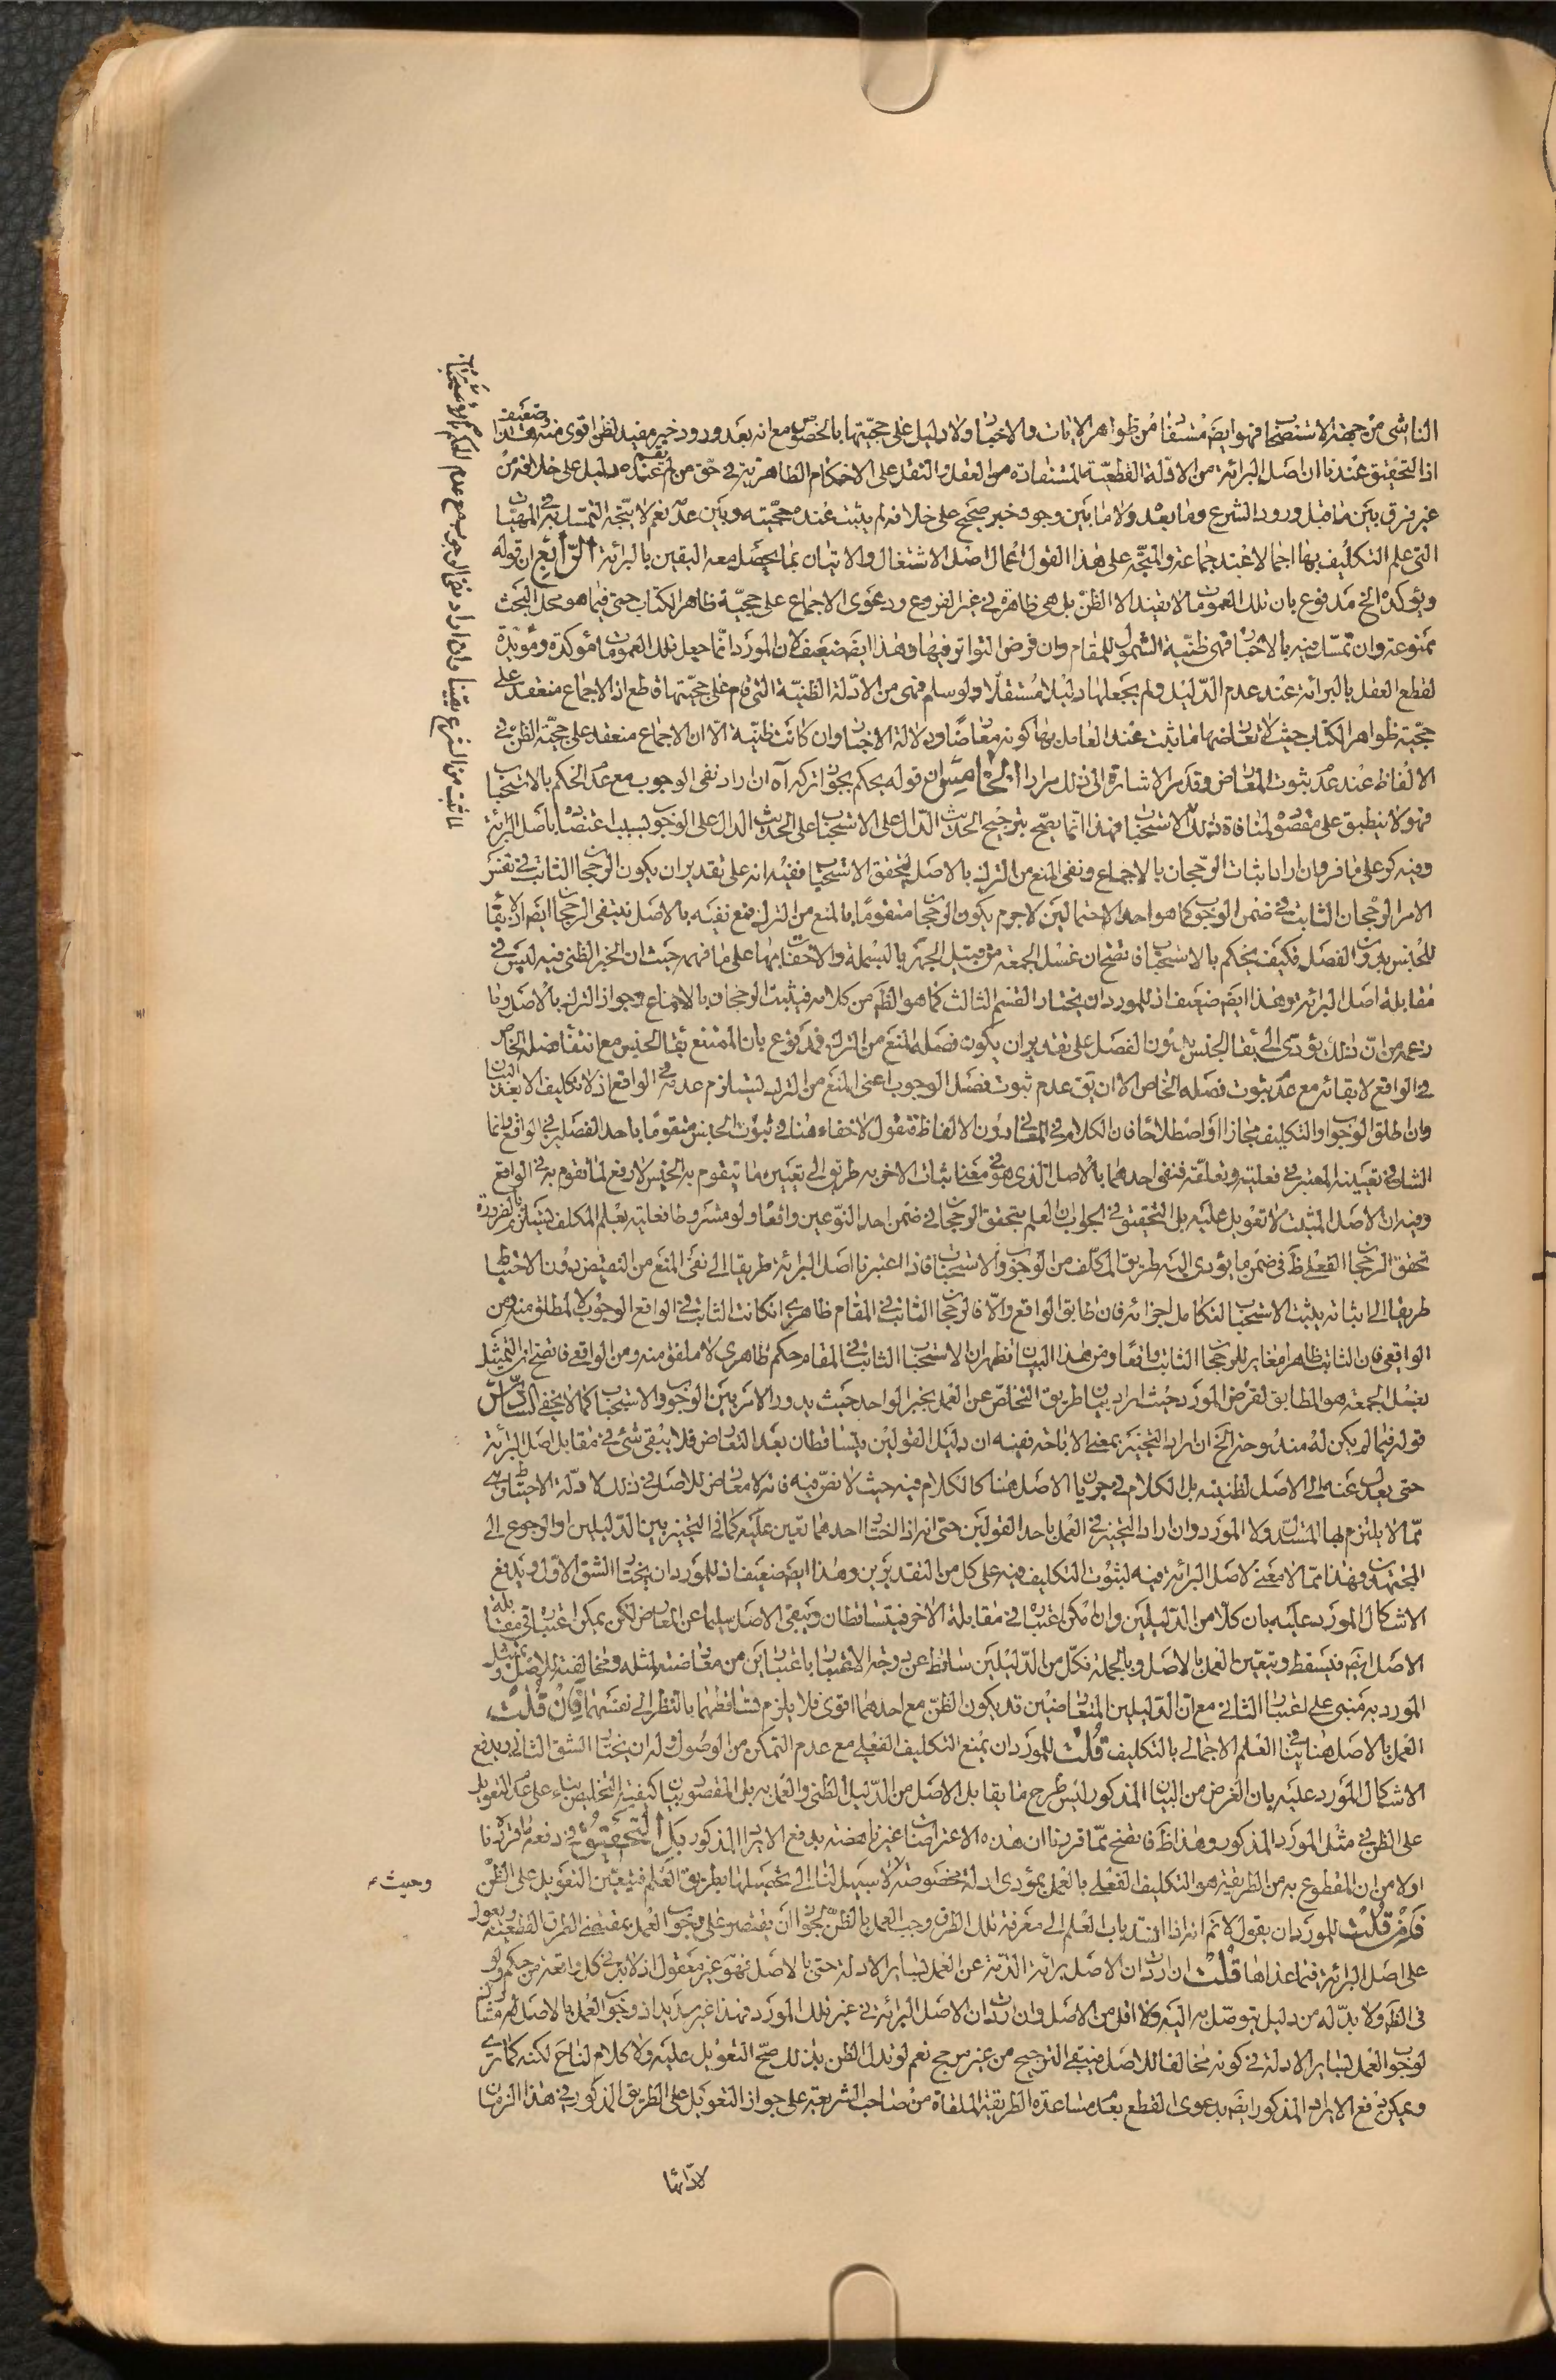 الناشى من جهة الاستصحاب فهو ايضا مستفاد من ظواهر الايات والاخبار ولا دليل على حجيتها بالخصوص مع انه بعد ورود خبر مفيد لظن اقوى منه وضعيف هذا
اذ التحقيق عندنا ان اصل البرائة من الادلة القطعية المستفادة من العقل والنقل على الاحكام الظاهرية في حق من لم يقم عنده دليل على خلافه من
غير فرق بين ما قبل ورود الشرع وما بعده ولا ما بين وجود خبر صحيح على خلافه لم يثبت عنده حجيته وبين عدمه نعم لا يتجه التمسك به في المهيات
التى علم التكليف بها اجمالا عند جماعة والمتجه على هذا القول اعمال اصل الاشتغال والاتيان بما يحصل معه اليقين بالبرائة الرابع ان قوله
ويؤكده الخ مدفوع بان تلك العمومات لا يفيد الا الظن بل هى ظاهرة في غير الفروع ودعوى الاجماع على حجية ظاهر الكتاب حتى فيما هو محل البحث
ممنوعة وان تمسك فيه بالاخبار فهى ظنية الشمول للمقام وان فرض التواتر فيها وهذا ايضا ضعيف لان المورد انما جعل تلك العمومات مؤكدة ومؤيدة
لقطع العقل بالبرائة عند عدم الدليل ولم يجعلها دليلا مستقلا ولو سلم فهى من الادلة الظنية التى قام على حجيتها قاطع اذ الاجماع منعقد على
حجية ظواهر الكتاب حيث لا تعارضها ما ثبت عند العامل بها كونه معارضا ودلالة الاخبار وان كانت ظنية الا ان الاجماع منعقد على حجية الظن في
الالفاظ عند عدم ثبوت المعارض وقد مر الاشارة الى ذلك مرارا الخامس ان قوله يحكم بجواز تركه آه ان اراد نفى الوجوب مع عدم الحكم بالاستحباب
فهو لا ينطبق على مقصود لمنافاة ذلك الاستحباب فهذا انما يصح بترجيح الحديث الدال على الاستحباب على الحديث الدال على الوجوب لسبب اعتضاده باصل البرائة
وفيه كر على ما فر وان اراد اثبات الرجحان بالاجماع ونفى المنع من الترك بالاصل ليتحقق الاستحباب ففيه انه على تقدير ان يكون الرجحان الثابت في نفس
الامر الرجحان الثابت في ضمن الوجوب كما هو احد الاحتمالين لاجرم يكون الرجحان متقوما بالمنع من الترك فمع نفيه بالاصل ينتفى الرجحان ايضا اذ لا بقاء
للجنس بدون الفصل فكيف يحكم بالاستحباب فاتضح ان غسل الجمعة من قبيل الجهر بالبسملة والاخفات بها على ما فهمه حيث ان الخبر الظنى فيه ليس في
مقابلة اصل البرائة وهذا ايضا ضعيف اذ للمورد ان يختار القسم الثالث كما هو الظاهر من كلامه فيثبت الرجحان بالاجماع وجواز الترك بالاصل وما
زعمه من ان ذلك يؤدى الى بقاء الجنس بدون الفصل على تقدير ان يكون فصله المنع من الترك فمدفوع بان الممتنع بقاء الجنس مع انتفاء فصله الخاص
في الواقع لا بقائه مع عدم ثبوت فصله الخاص الا ان يق عدم ثبوت فصل الوجوب اعنى المنع من الترك ليستلزم عدمه في الواقع اذ لا تكليف الا بعد البيان
وان اطلق الوجوب والتكليف مجازا او اصطلاحا فان الكلام في المعانى دون الالفاظ فنقول لا خفاء هنا في ثبوت الجنس متقوما باحد الفصلين في الواقع وانما
الشك في تعيينه المعتبر في فعليته وتعلقه فنفى احدهما بالاصل الذى هو في معنى اثبات الاخر به طريق الى تعيين ما يتقوم به الجنس لا رفع لما تقوم به في الواقع
وفيه ان الاصل المثبت لا تعويل عليه بل التحقيق في الجواب ان العلم بتحقق الرجحان في ضمن احد النوعين واقعا ولو مشروطا فعليته بعلم المكلف ليستلزم بالضرورة
تحقق الرجحان الفعلى ظ في ضمن ما يؤدى اليه طريق المكلف من الوجوب والاستحباب فاذا اعتبرنا اصل البرائة طريقا الى نفى المنع من النقيض دون الاحتياط
طريقا الى اثباته يثبت الاستحباب لتكامل اجزائه فان طابق الواقع والا فالرجحان الثابت في المقام ظاهرى ان كانت الثابت في الواقع الوجوب لا لمطلق منه ومن
الواقعى فان الثابت ظاهرا مغاير للرجحان الثابت واقعا ومن هذا البيان تظهر ان الاستحباب الثابت في المقام حكم ظاهرى لا ملفق منه ومن الواقعى فاتضح ان التمثيل
بغسل الجمعة هو المطابق لغرض المورد حيث اراد بيان طريق التخلص عن العمل بخبر الواحد حيث يدور الامر بين الوجوب والاستحباب كما لا يخفى السادس
قوله فيما لم يكن له مندوحة الخ ان اراد التخيير بمعنى الاباحة ففيه ان دليل القولين يتساقطان بعد التعارض فلا يبقى شئ في مقابل اصل البرائة
حتى يعدل عنه الى الاصل لظنيته بل الكلام في جريان الاصل هنا كالكلام فيه حيث لا نص فيه فانه لا معارض للاصل في ذلك الا ادلة الاحتياط وهى
مما لا يلتزم بها المستدل ولا المورد وان اراد التخيير في العمل باحد القولين حتى انه اذا اختار احدهما تعين عليه كما في التخيير بين الدليلين او الرجوع الى
المجتهدين فهذا مما لا معنى لاصل البرائة فيه لثبوت التكليف فيه على كل من التقديرين وهذا ايضا ضعيف اذ للمورد ان يختار الشق الاول ويدفع
الاشكال المورد عليه بان كلا من الدليلين وان امكن اعتباره في مقابلة الاخر فيتساقطان ويبقى الاصل سليما عن المعارض لكن يمكن اعتباره في مقابلة
الاصل ايضا فيسقط ويتعين العمل بالاصل وبالجملة فكل من الدليلين ساقط عن درجة الاعتبار باعتبارين من معارضته لمثله ومخالفته للاصل وتمثيل
المورد به مبنى على اعتبار الثانى مع ان الدليلين المتعارضين قد يكون الظن مع احدهما اقوى فلا يلزم تساقطهما بالنظر الى نفسهما فان قلت
العمل بالاصل هنا ينافى العلم الاجمالى بالتكليف قلت للمورد ان يمنع التكليف الفعلى مع عدم التمكن من الوصول وله ان يختار الشق الثانى ويدفع
الاشكال المورد عليه بان الغرض من البيان المذكور ليس طرح ما يقابل الاصل من الدليل الظنى والعمل به بل المقصود بيان كيفية التخليص بناء على عدم التعويل
على الظن في مثل المورد المذكور وهذا ظ فاتضح مما قررنا ان هذه الاعتراضات غير ناهضة بدفع الايراد المذكور بل التحقيق في دفعه ما قررنا
اولا من ان المقطوع به من الطريقة هو التكليف الفعلى بالعمل بمؤدى ادلة مخصوصة لا سبيل لنا الى تحصيلها بطريق العلم فيتعين التعويل على الظن
وحيث
فان قلت للمورد ان يقول لا نم انه اذا انسد باب العلم الى معرفة تلك الطرق وجب العمل بالظن لجواز ان يقتصر على وجوب العمل بمقتضى الطرق القطعية ويعول
على اصل البرائة فيما عداها قلت ان اردت ان الاصل برائة الذمة عن العمل بساير الادلة حتى بالاصل فهو غير معقول اذ لا بد في كل واقعة من حكم ولو
في الظاهر ولا بد له من دليل يتوصل به اليه ولا اقل من الاصل وان اردت ان الاصل البرائة في غير تلك المورد فهذا غير سديد اذ وجوب العمل بالاصل مشارك
لوجوب العمل بساير الادلة في كونه مخالفا للاصل فيبقى الترجيح من غير مرجح نعم لو دل الظن بذلك صح التعويل عليه ولا كلام لنا ح لكنه كما ترى
ويمكن دفع الايراد المذكور ايضا بدعوى القطع بعدم مساعدة الطريقة الملقاة من صاحب الشريعة على جواز التعويل على الطريق المذكور في هذا الزمان
لادائها